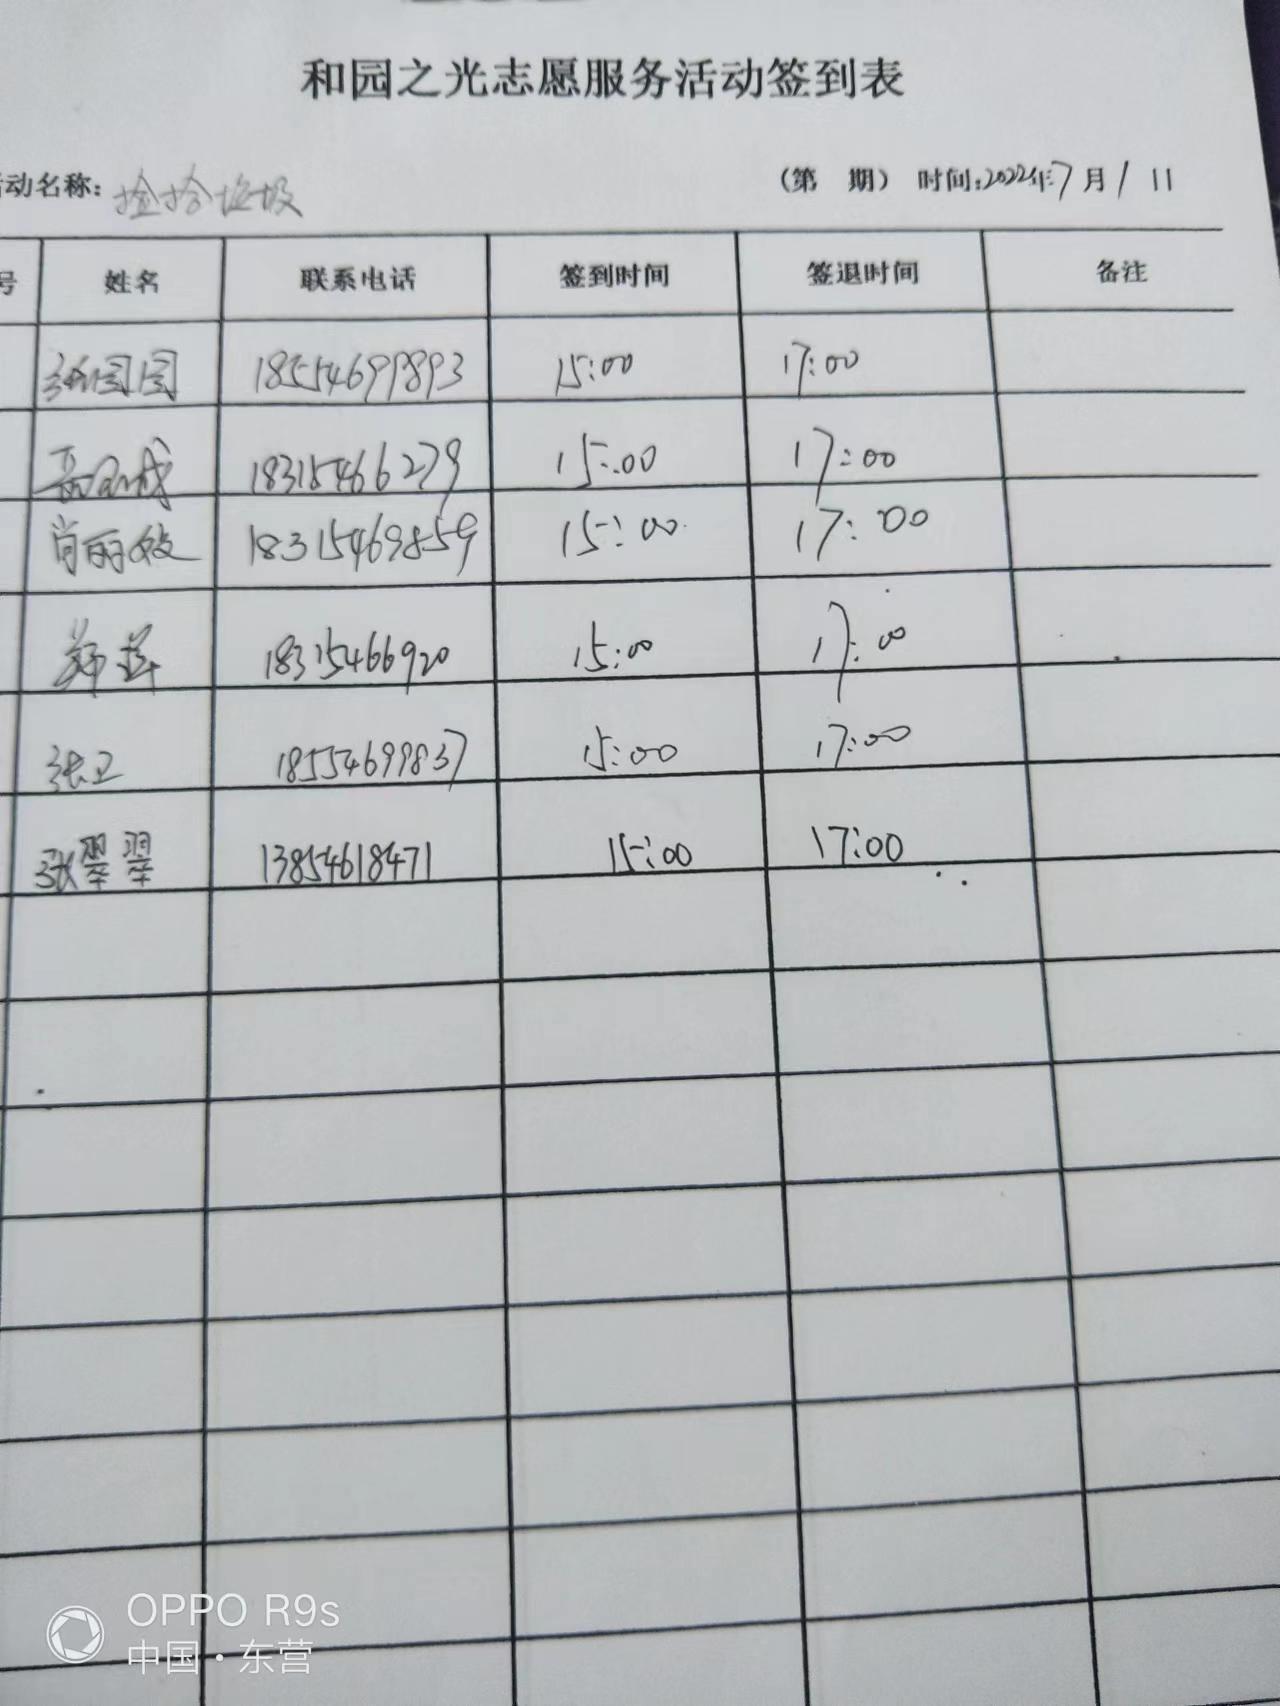 和园之光志愿服务活动签到表
活动名称：捡拾垃圾 （第 期） 时间：2022年7月1日
号 姓名 联系电话 签到时间 签退时间 备注
张园园 18554699893 15:00 17:00
18315466279 15:00 17:00
肖丽姣 18315469859 15:00 17:00
郑萍 18315466920 15:00 17:00
张卫 18554699837 15:00 17:00
张翠翠 13854618471 15:00 17:00
OPPO R9s
中国·东营